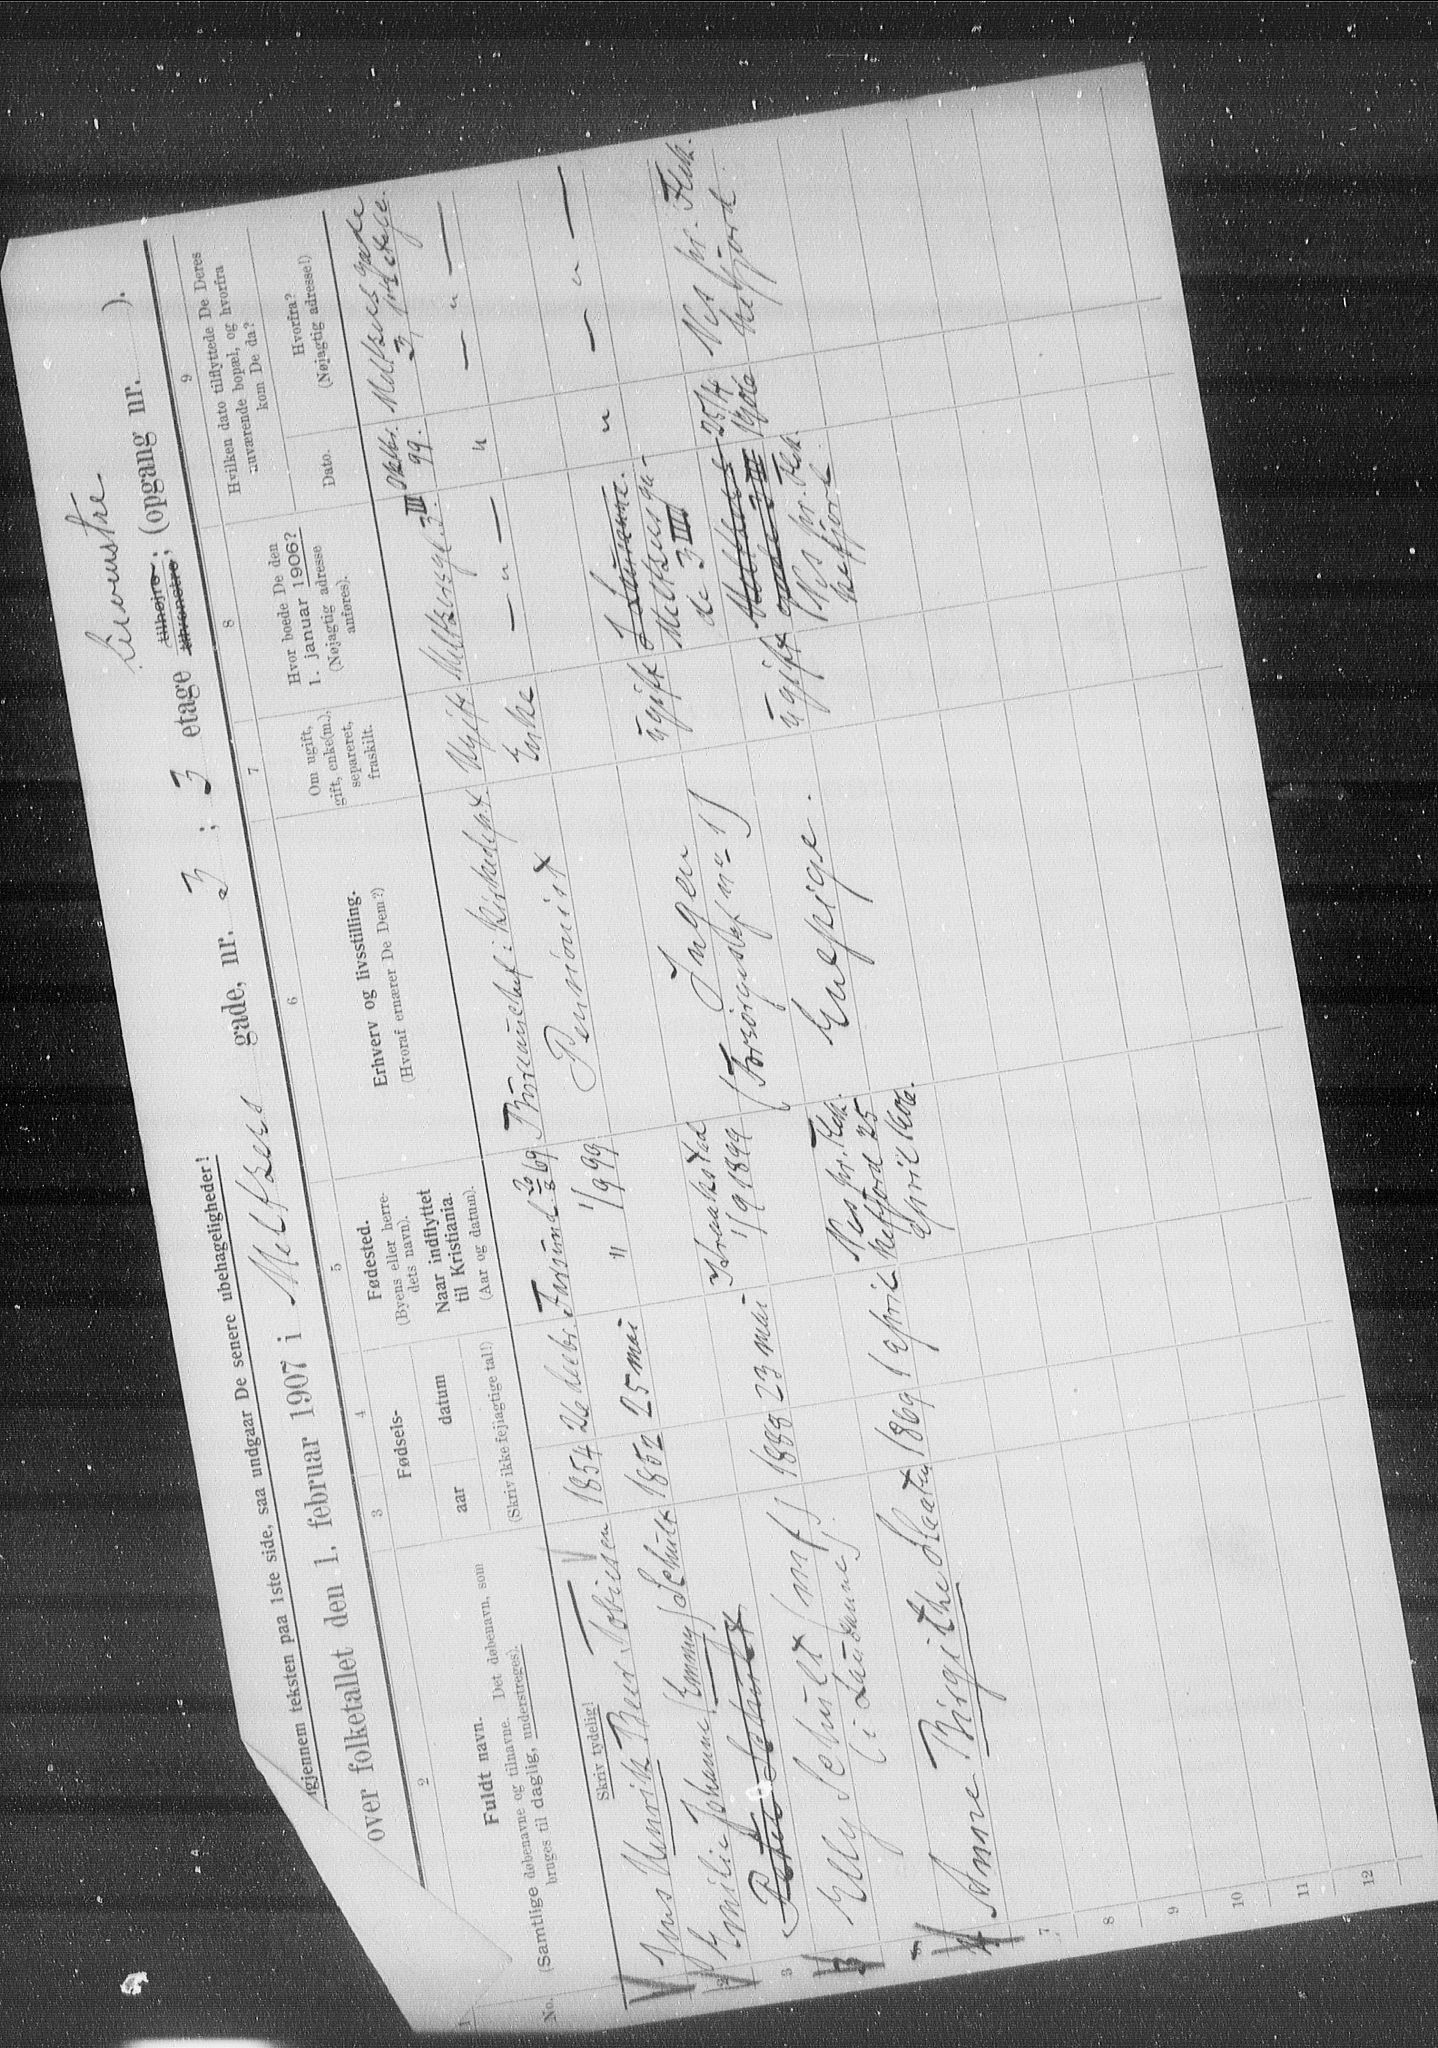 igjennem teksten paa 1ste side, saa undgaar De senere ubehageligheder!
over folketallet den 1. februar 1907 i Meltzers gade, nr. 3 ; 3 etage tilhøjre tilvenstre; (opgang nr. ).
1 2 3 4 5 6 7 8 9
No.
Fuldt navn.
(Samtlige døbenavne og tilnavne. Det døbenavn, som
bruges til daglig, understreges).
Skriv tydelig!
Fødsels-
aar datum
(Skriv ikke fejlagtige tal!)
Fødested.
(Byens eller herre-
dets navn).
Naar indflyttet
til Kristiania.
(Aar og datum).
Erhverv og livsstilling.
(Hvoraf ernærer De Dem?)
Om ugift,
gift, enke(m.),
separeret,
fraskilt.
Hvor boede De den
1. januar 1906?
(Nøjagtig adresse
anføres).
Hvilken dato tilflyttede De Deres
nuværende bopæl, og hvorfra
kom De da?
Dato.
Hvorfra?
(Nøjagtig adresse!)
Jens Henrik Beer Tobiesen 1854 Farsund Bureauchef i Kirkedept. Ugift Meltzersg. 3 III Oktbr. 99. Meltzers gade
3
2 Emilie Johanne (Emmy) Schultz 1852 25 mai " 1/9 99 Pensionist Enke — " — " — " —
3 " — " —
Elly Schultz 1888 23 mai 1/9 1899 Ingen ugift Meltzersga-
de 3 III
(i Lausanne). (Forsørges af No 1)
Anne Birgithe 1869 April Nes pr. Flek-
kefjord 25
April 1906. ugift Nes pr. Flek-
kefjord 25/4
1906 Nes pr. Flek-
kefjord.
7
8
9
10
11
12